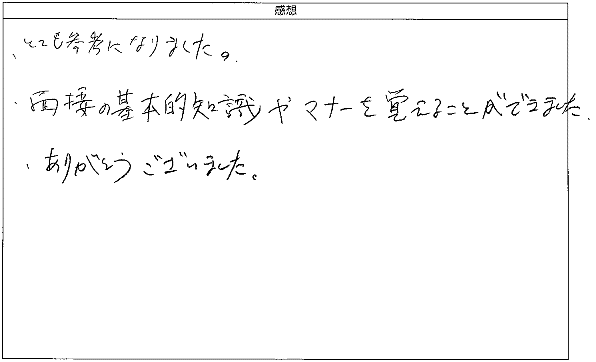 感想
・とても参考になりました。
・面接の基本的知識やマナーを覚えることができました.
・ありがとうございました。